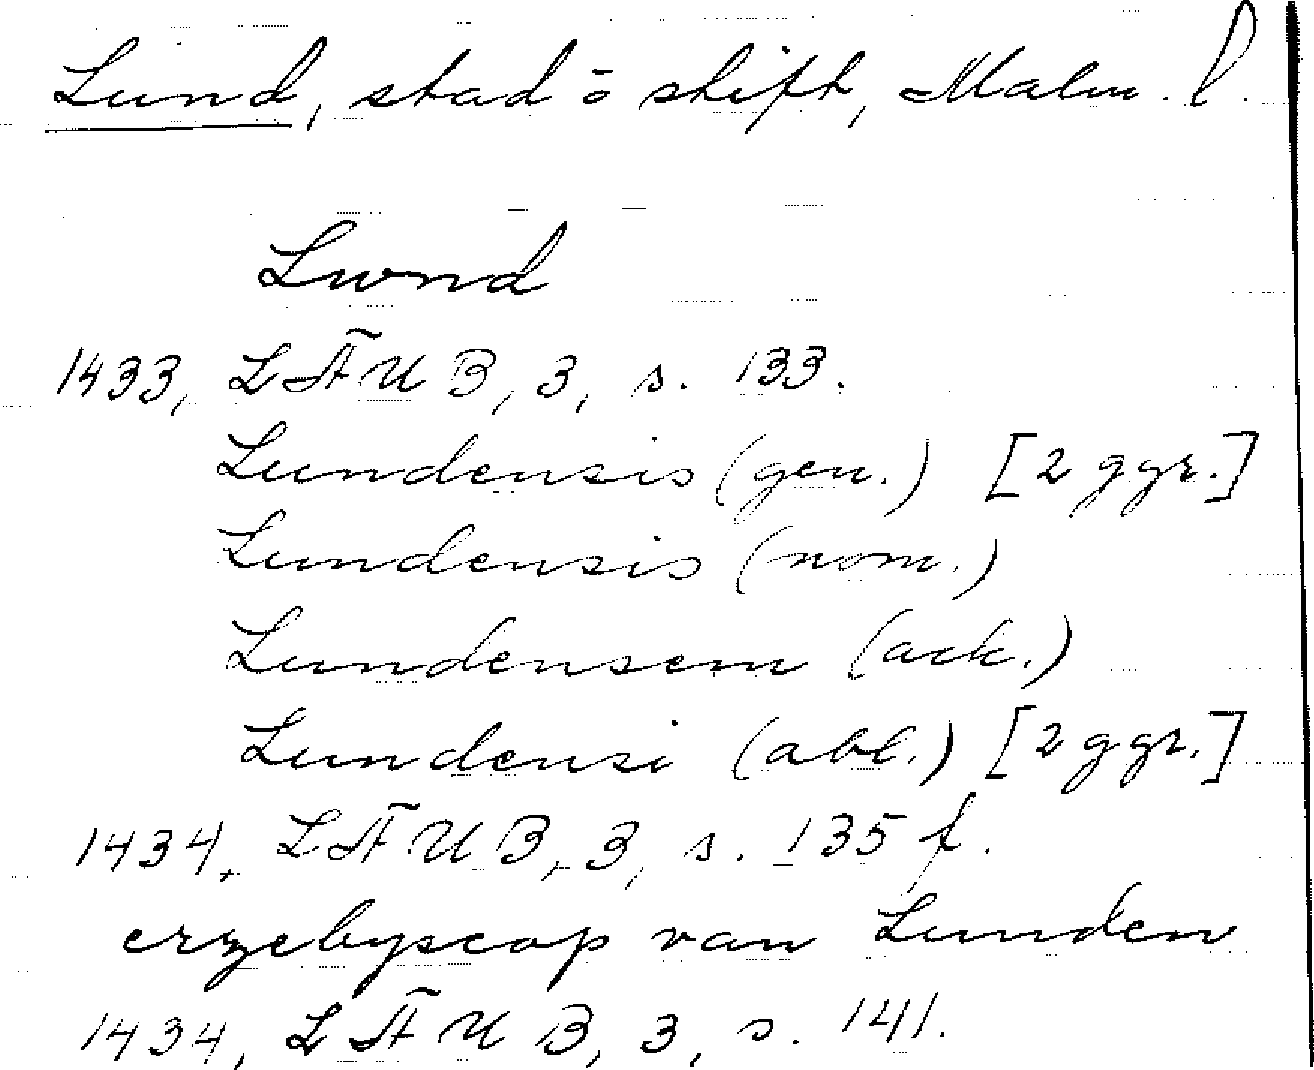 Lund, stad o skift, Malm. l.
Lwnd
1433, LÄUB, 3, s. 133.
Lundensis (gen.) [2 ggr.]
Lundensis (nom.)
Lundensem (ack.)
Lundensi (abl.) [2 ggr.]
1434, LÄUB, 3, s. 135 f.
erzebyscop van Lunden
1434, LÄUB, 3, s. 141.